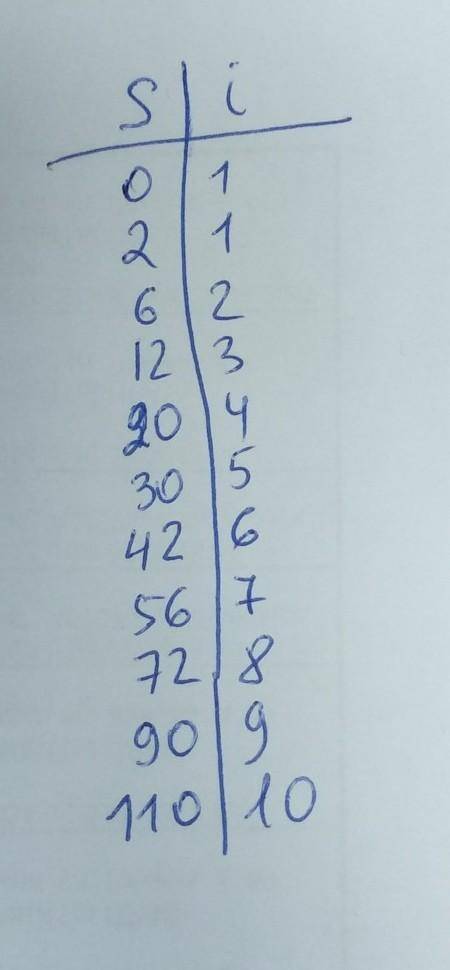 S i
0 1
2 1
6 2
12 3
20 4
30 5
42 6
56 7
72 8
90 9
110 10